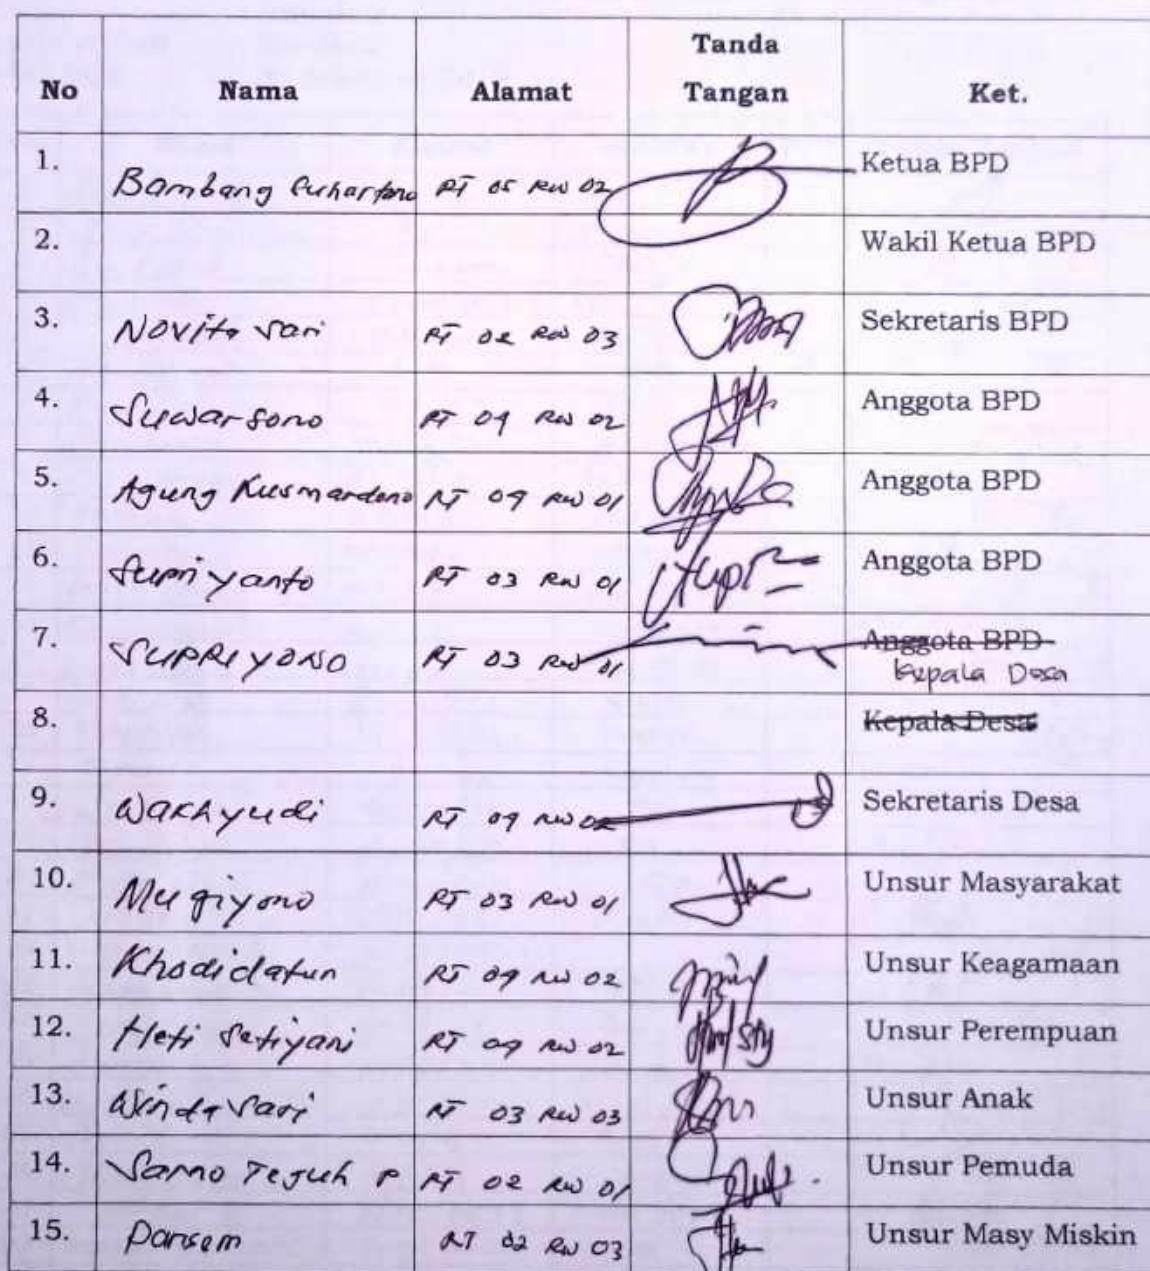 No Nama Alamat Tanda Tangan Ket.
1. Bambang Suhartono RT 05 RW 02 Ketua BPD
2. Wakil Ketua BPD
3. Novita Sari RT 02 RW 03 Sekretaris BPD
4. Suwarsono RT 04 RW 02 Anggota BPD
5. Agung Kusmardono RT 04 RW 01 Anggota BPD
6. Supriyanto RT 03 RW 01 Anggota BPD
7. SUPRIYONO RT 03 RW 01 Anggota BPD
Kepala Desa
8. Kepala Desa
9. Wakhyudi RT 04 RW 02 Sekretaris Desa
10. Mugiyono RT 03 RW 01 Unsur Masyarakat
11. Khodidatun RT 04 RW 02 Unsur Keagamaan
12. Heti Setiyani RT 04 RW 02 Unsur Perempuan
13. Winda Sari RT 03 RW 03 Unsur Anak
14. Sarno Teguh P RT 02 RW 01 Unsur Pemuda
15. Parsem RT 02 RW 03 Unsur Masy Miskin